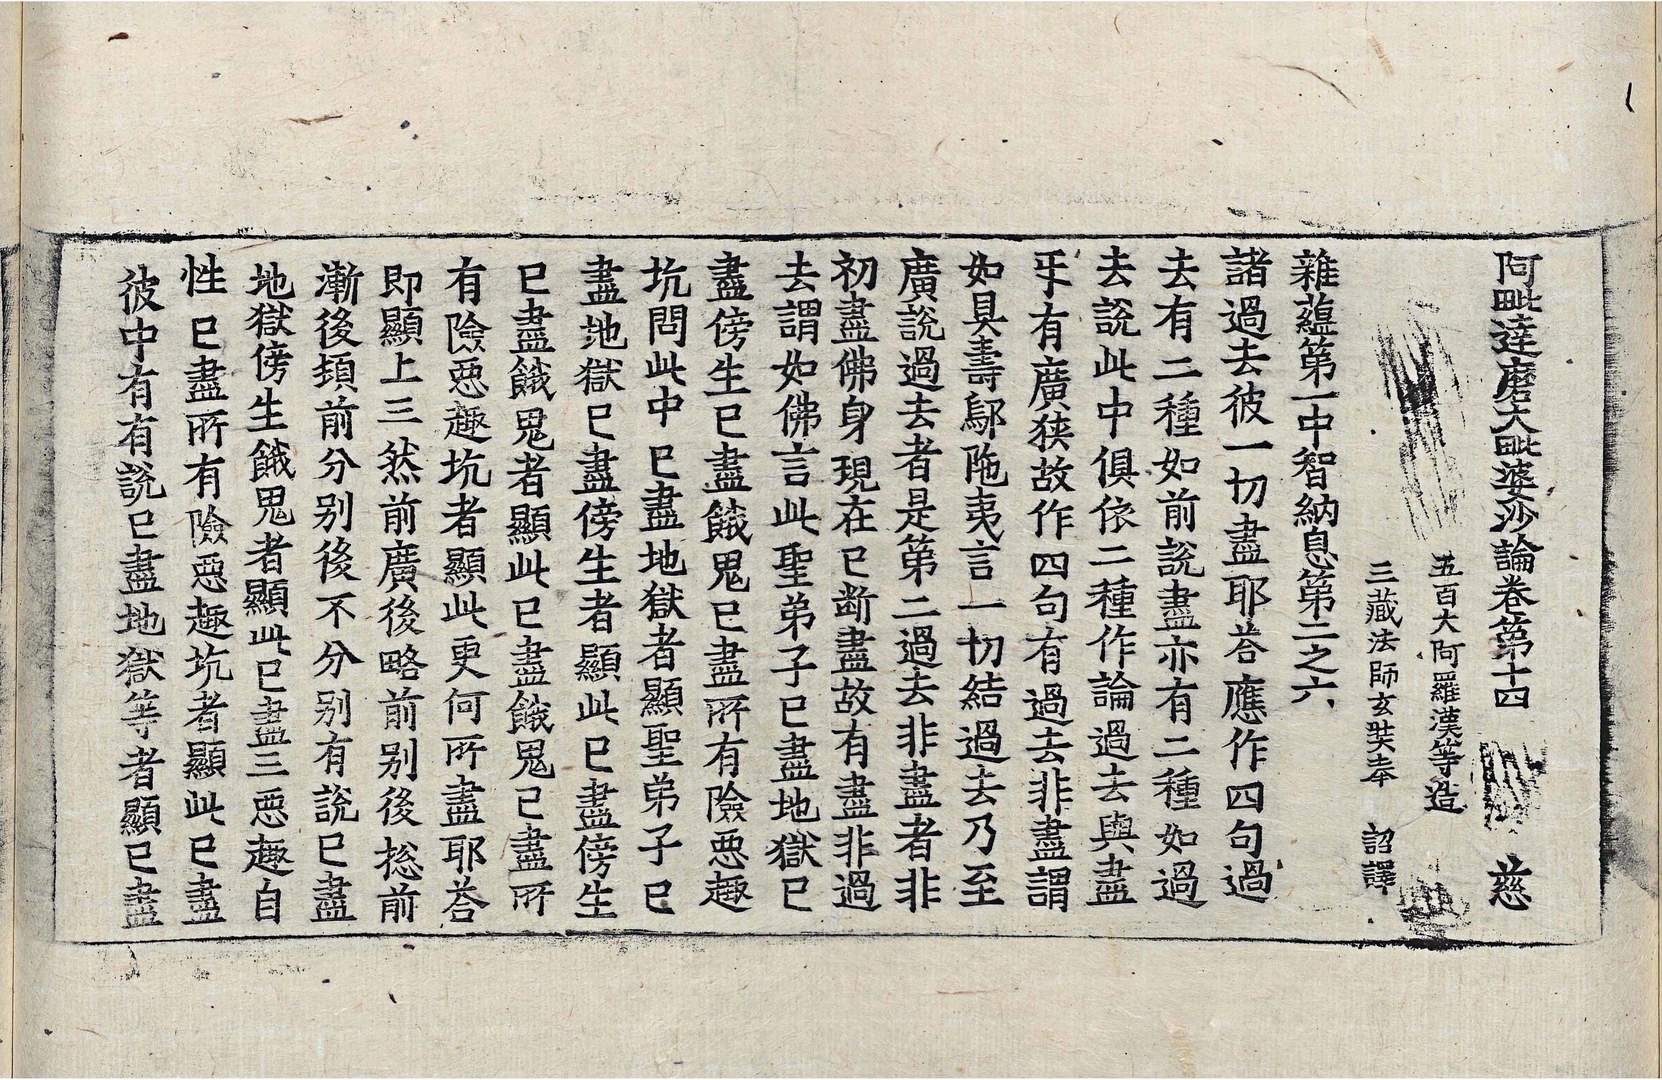 阿毗達磨大毗婆沙論卷第十四 慈
五百大阿羅漢等造
三藏法師玄奘奉 詔譯
雜蘊第一中智納息第二之六
諸過去彼一切盡耶荅應作四句過
去有二種如前説盡亦有二種如過
去説此中俱依二種作論過去與盡
㸦有廣狹故作四句有過去非盡謂
如具壽鄔陁夷言一切結過去乃至
廣説過去者是第二過去非盡者非
初盡佛身現在已断盡故有盡非過
去謂如佛言此聖弟子已盡地獄已
盡傍生已盡餓鬼已盡所有險惡趣
坑問此中已盡地獄者顯聖弟子已
盡地獄已盡傍生者顯此已盡傍生
已盡餓鬼者顯此已盡餓鬼已盡所
有險惡趣坑者顯此更何所盡耶荅
即顯上三然前廣後略前别後捴前
漸後頓前分别後不分别有説已盡
地獄傍生餓鬼者顯此已盡三惡趣自
性已盡所有險惡趣坑者顯此已盡
彼中有有説已盡地獄等者顯已盡